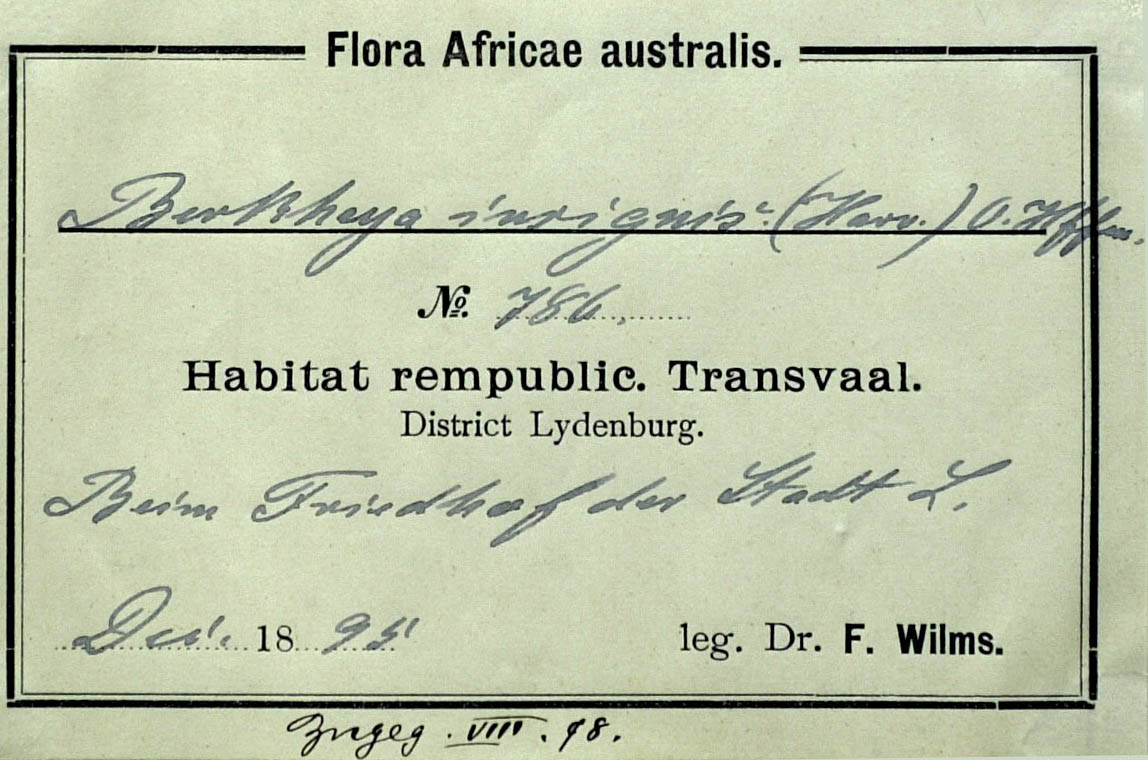 Flora Africae australis.
Berkheya insignis (Harv.) O. Hffm.
№ 786.
Habitat rempublic. Transvaal.
District Lydenburg.
Beim Friedhof der Stadt L.
Dec. 1895
leg. Dr. F. Wilms.
Zugeg. VIII. 98.